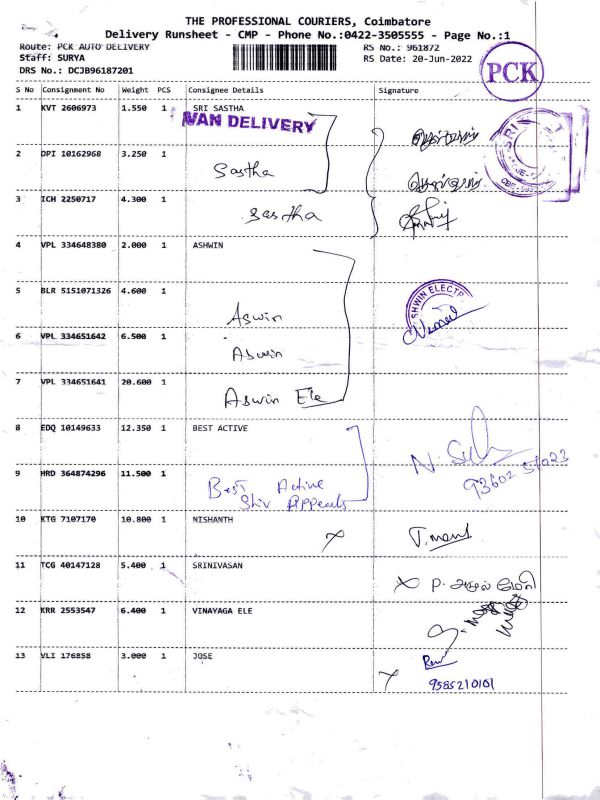 THE PROFESSIONAL COURIERS, Coimbatore
Delivery Runsheet - CMP - Phone No.:0422-3505555 - Page No.:1
Route: PCK AUTO DELIVERY RS No.: 961872
Staff: SURYA RS Date: 20-Jun-2022
DRS No.: DCJB96187201
PCK
S No Consignment No Weight PCS Consignee Details Signature
1 KVT 2606973 1.550 1 SRI SASTHA
VAN DELIVERY
2 DPI 10162968 3.250 1
Sastha
3 ICH 2250717 4.300 1 Sastha
4 VPL 334648380 2.000 1 ASHWIN
5 BLR 5151071326 4.600 1
Aswin
6 VPL 334651642 6.500 1
Aswin
7 VPL 334651641 20.600 1
Aswin Ele
8 EDQ 10149633 12.350 1 BEST ACTIVE
9 HRD 364874296 11.500 1
Best Active
10 KTG 7107170 10.800 1 NISHANTH
11 TCG 40147128 5.400 1 SRINIVASAN
12 KRR 2553547 6.400 1 VINAYAGA ELE
13 VLI 176858 3.000 1 JOSE
9585210101